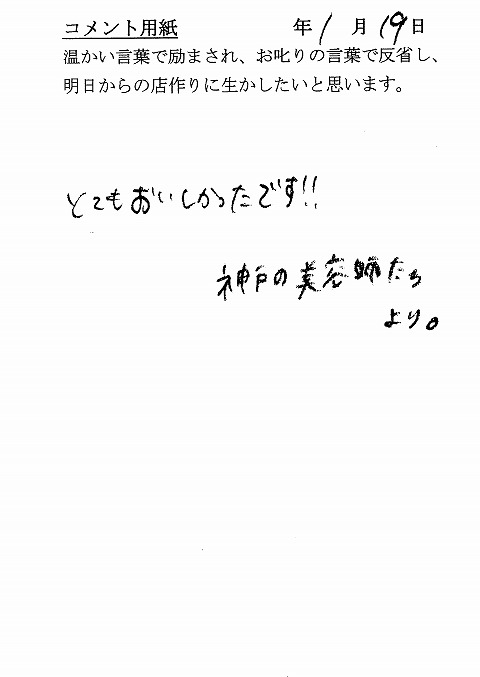 コメント用紙 年1月19日
温かい言葉で励まされ、お叱りの言葉で反省し、
明日からの店作りに生かしたいと思います。
とてもおいしかったです!!
神戸の美容師たち
より。